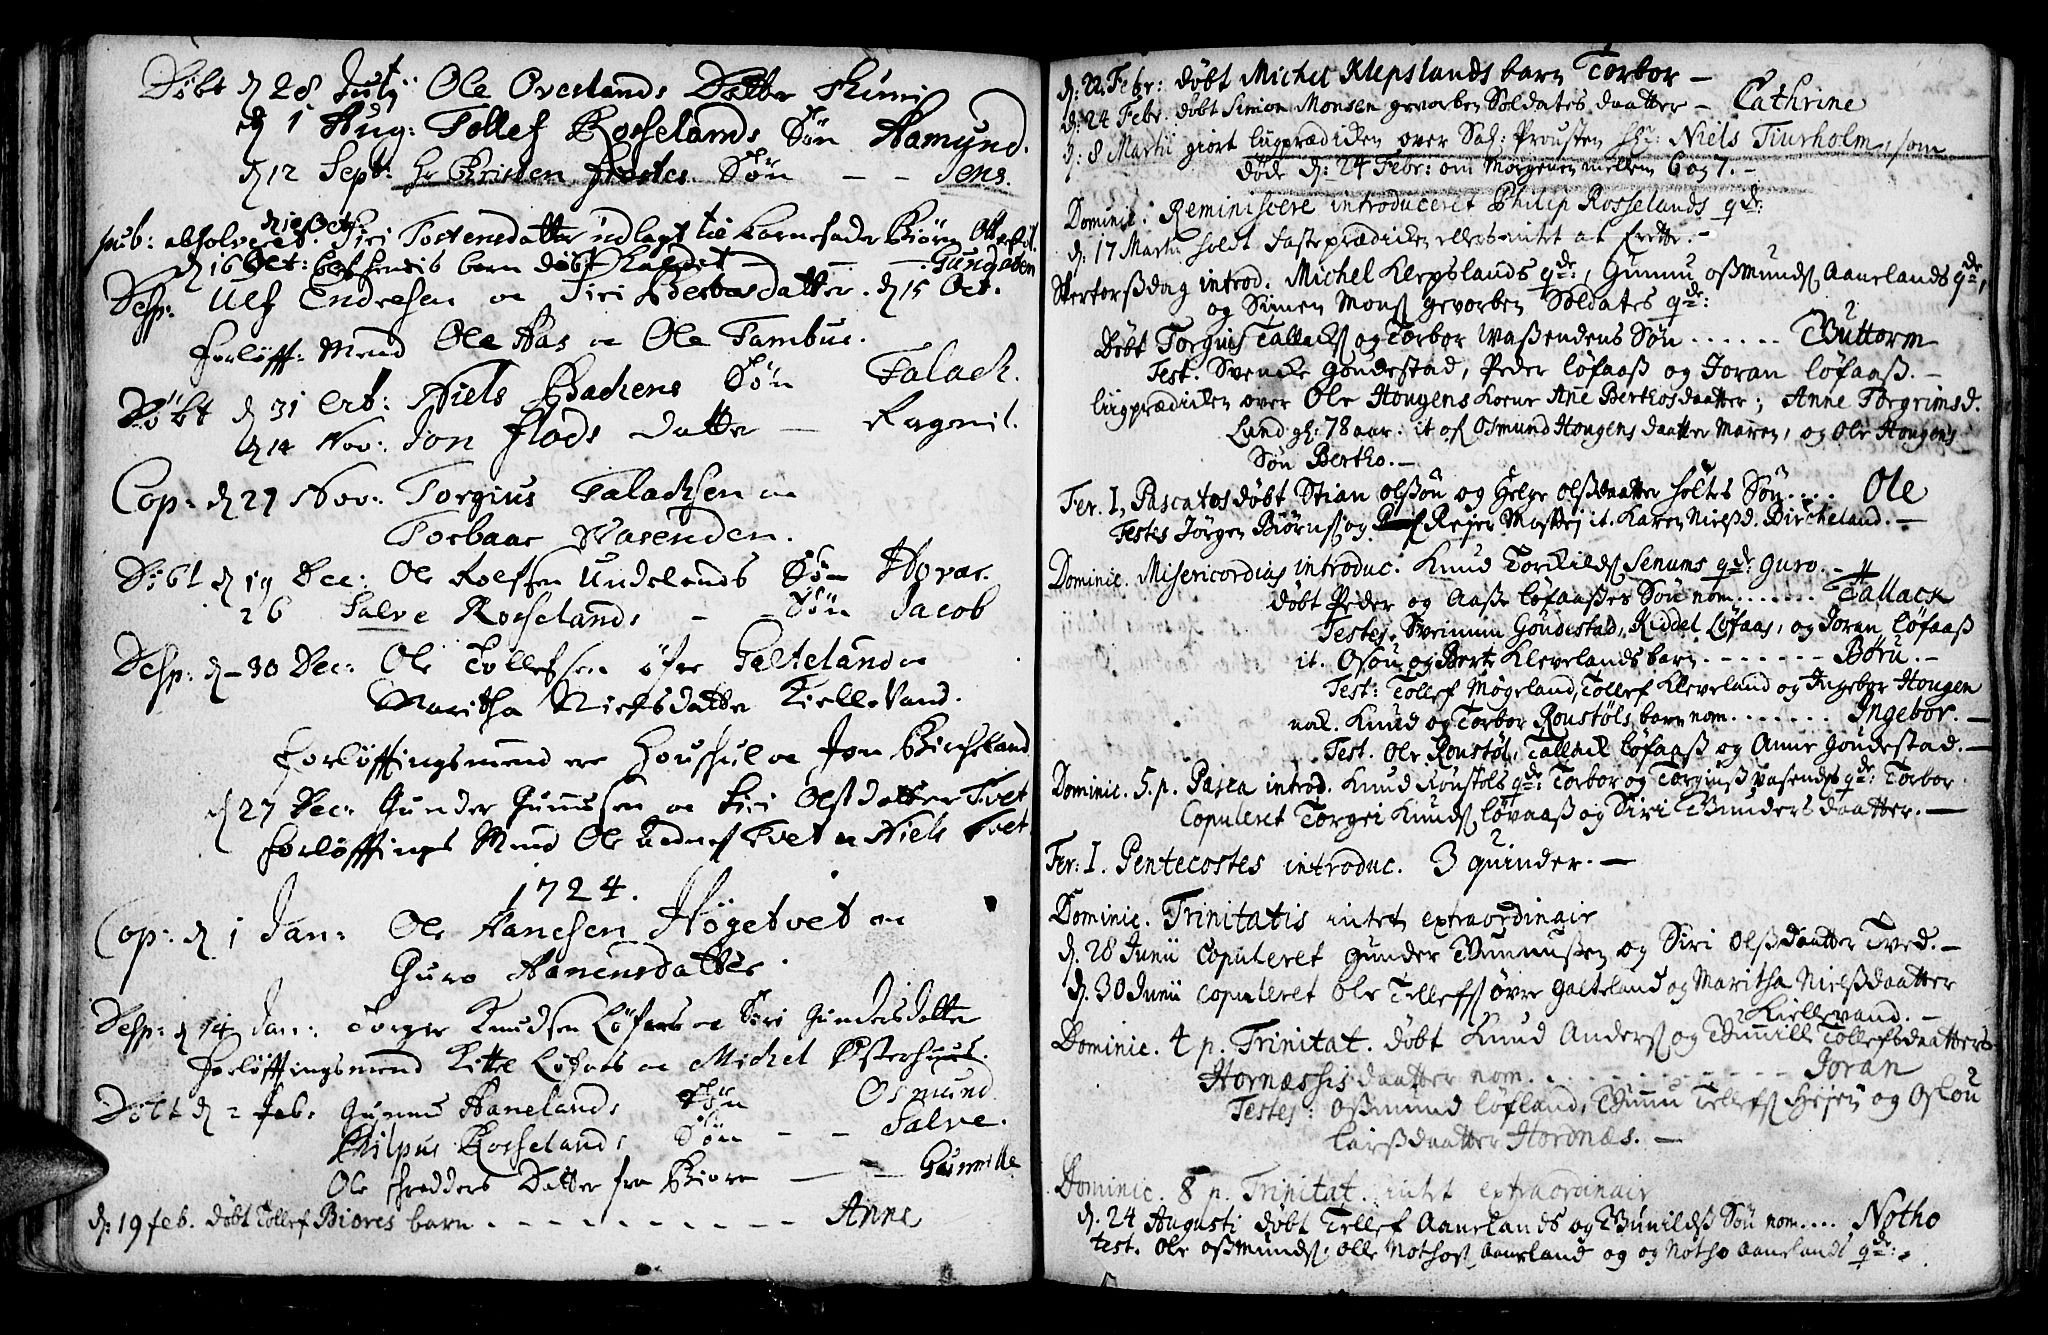 Døbt d 28 Julij Ole Overlands Datter Sirri
d 1 Aug: Tollef Rosselands Søn Aamund.
d 12 Sept: Hr Christen Søn - - Jens.
pub: absolveret. d 10 Oct: Siri Tostensdatter udlagt til Barnefader Biørn
d 16 Oct: barn døbt kaldet - - - Gunbiøren
Desp: Ulf Endresen oc Siri datter. d 15 Oct.
Forløff: Mend Ole Aas oc Ole Tambur.
Døbt d 31 Niels Bachens Søn Talach.
d 14 Nov: Jon Flods datter - Ragenil.
Cop: d 27 Nov: Torgius Talachsen oc
Torbaar Wasenden.
Døbt d 19 Dec: Ole Rolfsen Undelands Søn Hovar.
26 Salve Rosselands - Søn Jacob
Desp: d - 30 Dec: Ole Tollefsen øfre Galteland oc
Maritha Nielsdatter Kiellevand.
Forløffingsmend ere oc Jon Birkeland
d 27 Dec: Gunder Gunnusen oc Siri Olsdatter Tvet
Forløffings Mend Ole Tvet oc Niels Tvet
1724.
Cop: d 1 Jan: Ole Aanensen Høgetvet oc
Guro Aanensdatter.
Desp: d 14 Jan: Torger Knudsen Løfaas oc Siri Gundersdatter
Forløffingsmend Kittel Løfaas oc Michel Østerhuus.
Døbt d 2 Feb: Gunnu Aanelands Søn Osmund
Philpus Rosselands Søn - - Salve.
Ole shredders Datter fra Biore - - - Gunnille
d: 19 feb. døbt Tollef Biores barn - - - - - - - - - - Anne
d: 22 Febr: døbt Michel Klepslands barn Torbor -
d: 24 Febr. døbt Simon Monsen gevorben Soldates daatter - Cathrine
d: 8 Martii giort liigprædiken over Sal: Prousten Hr: Niels Tiurholm, som
døde d: 24 Febr: om Morgenen mellem 6 og 7. -
Dominic: Reminiscere introduceret Philip Rosselands qde:
d. 17 Martii holdt fasteprædicken ellers intet at
Skertorsdag introd. Michel Klepslands qde:, Gunnu Osmunds Aanelands qde,
og Simen Mons gevorben Soldates qde:
Døbt Torgius Tallacks og Torbor Waßendens Søn . . . . . . Guttorm
Test. Svenke Goudestad, Peder løfaaß og Joran løfaaß. -
liigprædicken over Ole Hougens Kone Ane Berthosdaatter; Anne Torgrimsd.
Lund gl: 78 aar. it of Osmund Hougens daatter Maren, og Ole Hougens
Søn Bertho. -
Fer. I. Pascatos døbt Stian Olßøn og Helge Olßdaatter Holtes Søn . . . . Ole
Testes Jørgen Biørns og Rejer it. Karen Nielsd. Bircheland. -
Dominic. Misericordias introduc. Knud Torkilds Senums qde: Guro. -
døbt Peder og Aaße løfaaßes Søn nom . . . . . . . Tallack
Testes. Sveinum Goudestad, Kiddel Løfaas, og Joran løfaaß
it. Osou og Berte Klevelands barn . - - - - - - Børu. -
Test: Tollef Møgeland, Tollef Kleveland og Ingebor Hougen
nok. Knud og Torbor Roustøls barn nom . . . . . . . Ingebor. -
Test. Ole Roustøl, Tallack løfaaß og Anne Goudestad. -
Dominic. 5. p. Pasca introd. Knud Roustøls qde: Torbor og Torgiuß vasendes qde: Torbor
Copuleret Torgei Knuds løvaaß og Siri Gunders daatter. -
Fer: I. Pentecostes introduc. 3 quinder. -
Dominic. Trinitatis intet extraordinair
d. 28 Junii Copuleret Gunder Gunnußen og Siri Olßdaatter Tved. -
d. 30 Junii copuleret Ole Tellefs øvre Galteland og Maritha Nielßdaatter
Kiellevand. -
Dominic. 4 p. Trinitat. døbt Knud Anders og Gunnille Tollefsdaatters
Hornæssis daatter nom . . . . . . . - - - - - Joran
Testes: Oßmund løfland, Gunnu Tellefs Hejen og Osløu
larßdaatter Hordnæs. -
Dominic. 8 p. Trinitat. intet extraordinair
d. 24 Augusti døbt Tellef Aanelands og Gunilds Søn nom . . . . Notho
test. Ole Oßmunds, Olle Nothos Aaneland og og Notho Aanelands qde: -